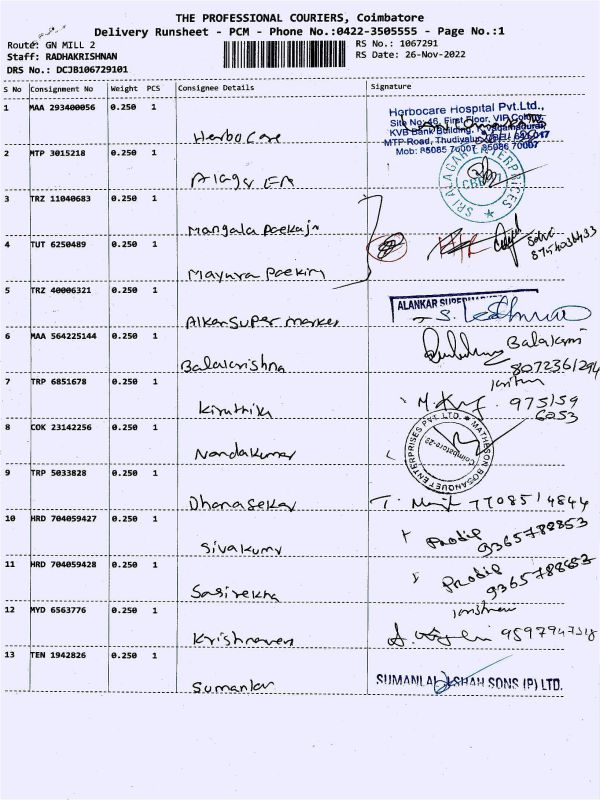 THE PROFESSIONAL COURIERS, Coimbatore
Delivery Runsheet - PCM - Phone No.:0422-3505555 - Page No.:1
Route: GN MILL 2
RS No.: 1067291
Staff: RADHAKRISHNAN
RS Date: 26-Nov-2022
DRS No.: DCJB106729101
S No Consignment No Weight PCS Consignee Details Signature
1 MAA 293400056 0.250 1 Herbocare
Horbocare Hospital Pvt.Ltd.,
Site No:46, First Floor, VIP Colony,
KVB Bank Building,
MTP Road,
Mob: 85085 70007, 85086 70007
2 MTP 3015218 0.250 1 Alagar
SRI ALAGAR ENTERPRICES
3 TRZ 11040683 0.250 1 Mangala
4 TUT 6250489 0.250 1 Mayura
8754036433
5 TRZ 40006321 0.250 1 Alkar Super market
ALANKAR SUPERMARKET
6 MAA 564225144 0.250 1 Balakrishna
8072361294
7 TRP 6851678 0.250 1 Kiruthika
975159
6253
8 COK 23142256 0.250 1 Nandakumar
MATHESON BOSANQUET ENTERPRISES PVT. LTD.
Coimbatore-22
9 TRP 5033828 0.250 1 Dhanasekar
7708514844
10 HRD 704059427 0.250 1 Sivakumr
Pradip
9365788853
11 HRD 704059428 0.250 1 Sasirekha
Pradip
9365788853
12 MYD 6563776 0.250 1 Krishnaven
9597947318
13 TEN 1942826 0.250 1 Sumanlar
SUMANLAL SHAH SONS (P) LTD.